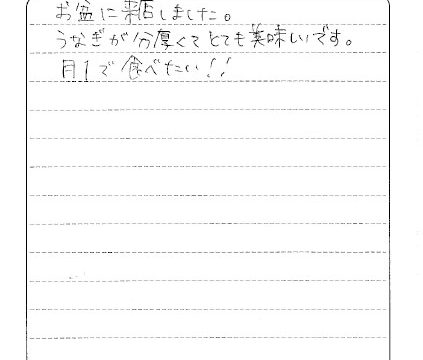 お盆に来店しました。
うなぎが分厚くてとても美味しいです。
月1で食べたい!!